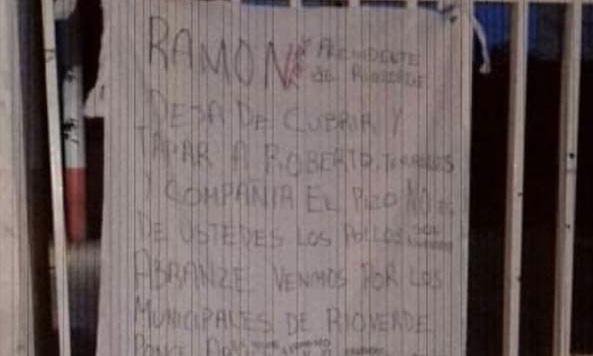 RAMON PRECIDENTE
de RIOVERDE
DEJA DE CUBRIR Y
TAPAR A ROBERTO
Y COMPAÑIA EL PIZO NO es
DE USTEDES LOS POLLOS
ABRANZE VENIMOS POR LOS
MUNICIPALES DE RIOVERDE